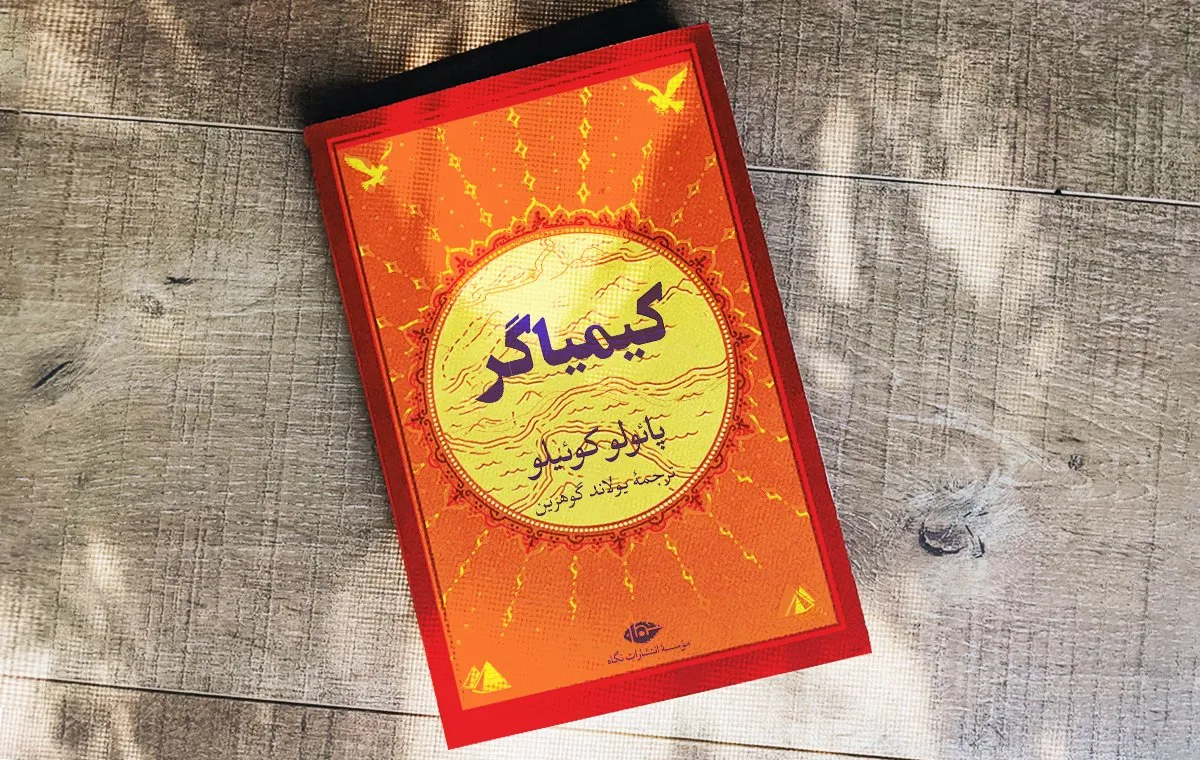 کیمیاگر
پائولو کوئیلو
ترجمهٔ یولاند گوهرین
مؤسسهٔ انتشارات نگاه